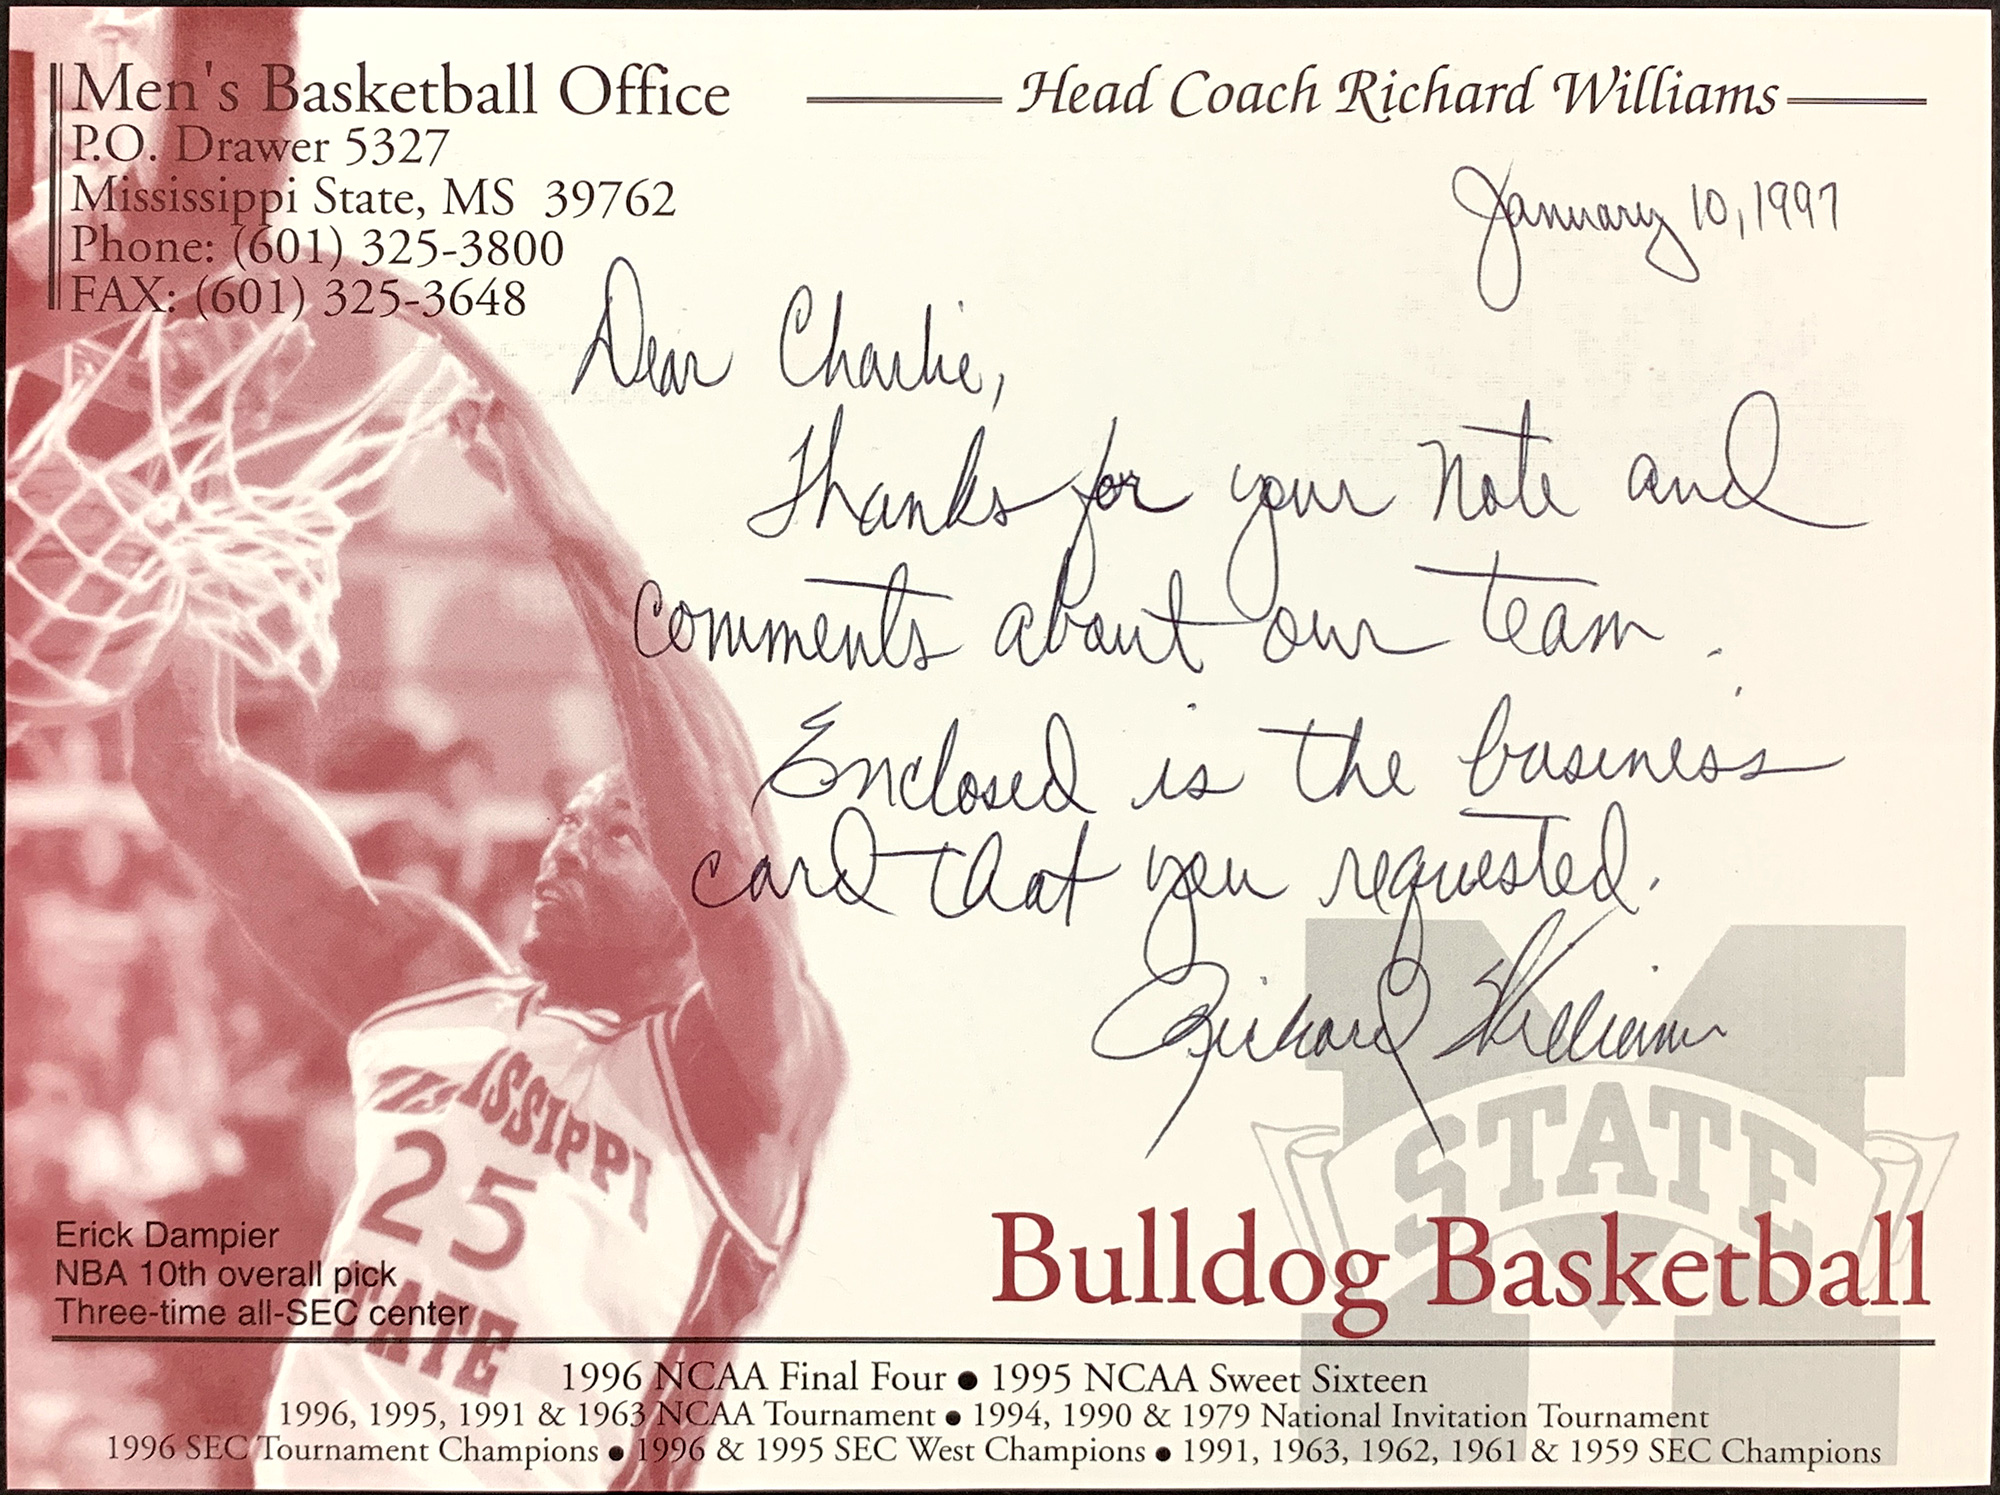 Men's Basketball Office
P.O. Drawer 5327
Mississippi State, MS 39762
Phone: (601) 325-3800
FAX: (601) 325-3648
Head Coach Richard Williams
January 10, 1997
Dear Charlie,
Thanks for your note and
comments about our team.
Enclosed is the business
card that you requested.
Richard Williams
STATE
MISSISSIPPI
25
STATE
Erick Dampier
NBA 10th overall pick
Three-time all-SEC center
Bulldog Basketball
1996 NCAA Final Four ● 1995 NCAA Sweet Sixteen
1996, 1995, 1991 & 1963 NCAA Tournament ● 1994, 1990 & 1979 National Invitation Tournament
1996 SEC Tournament Champions ● 1996 & 1995 SEC West Champions ● 1991, 1963, 1962, 1961 & 1959 SEC Champions